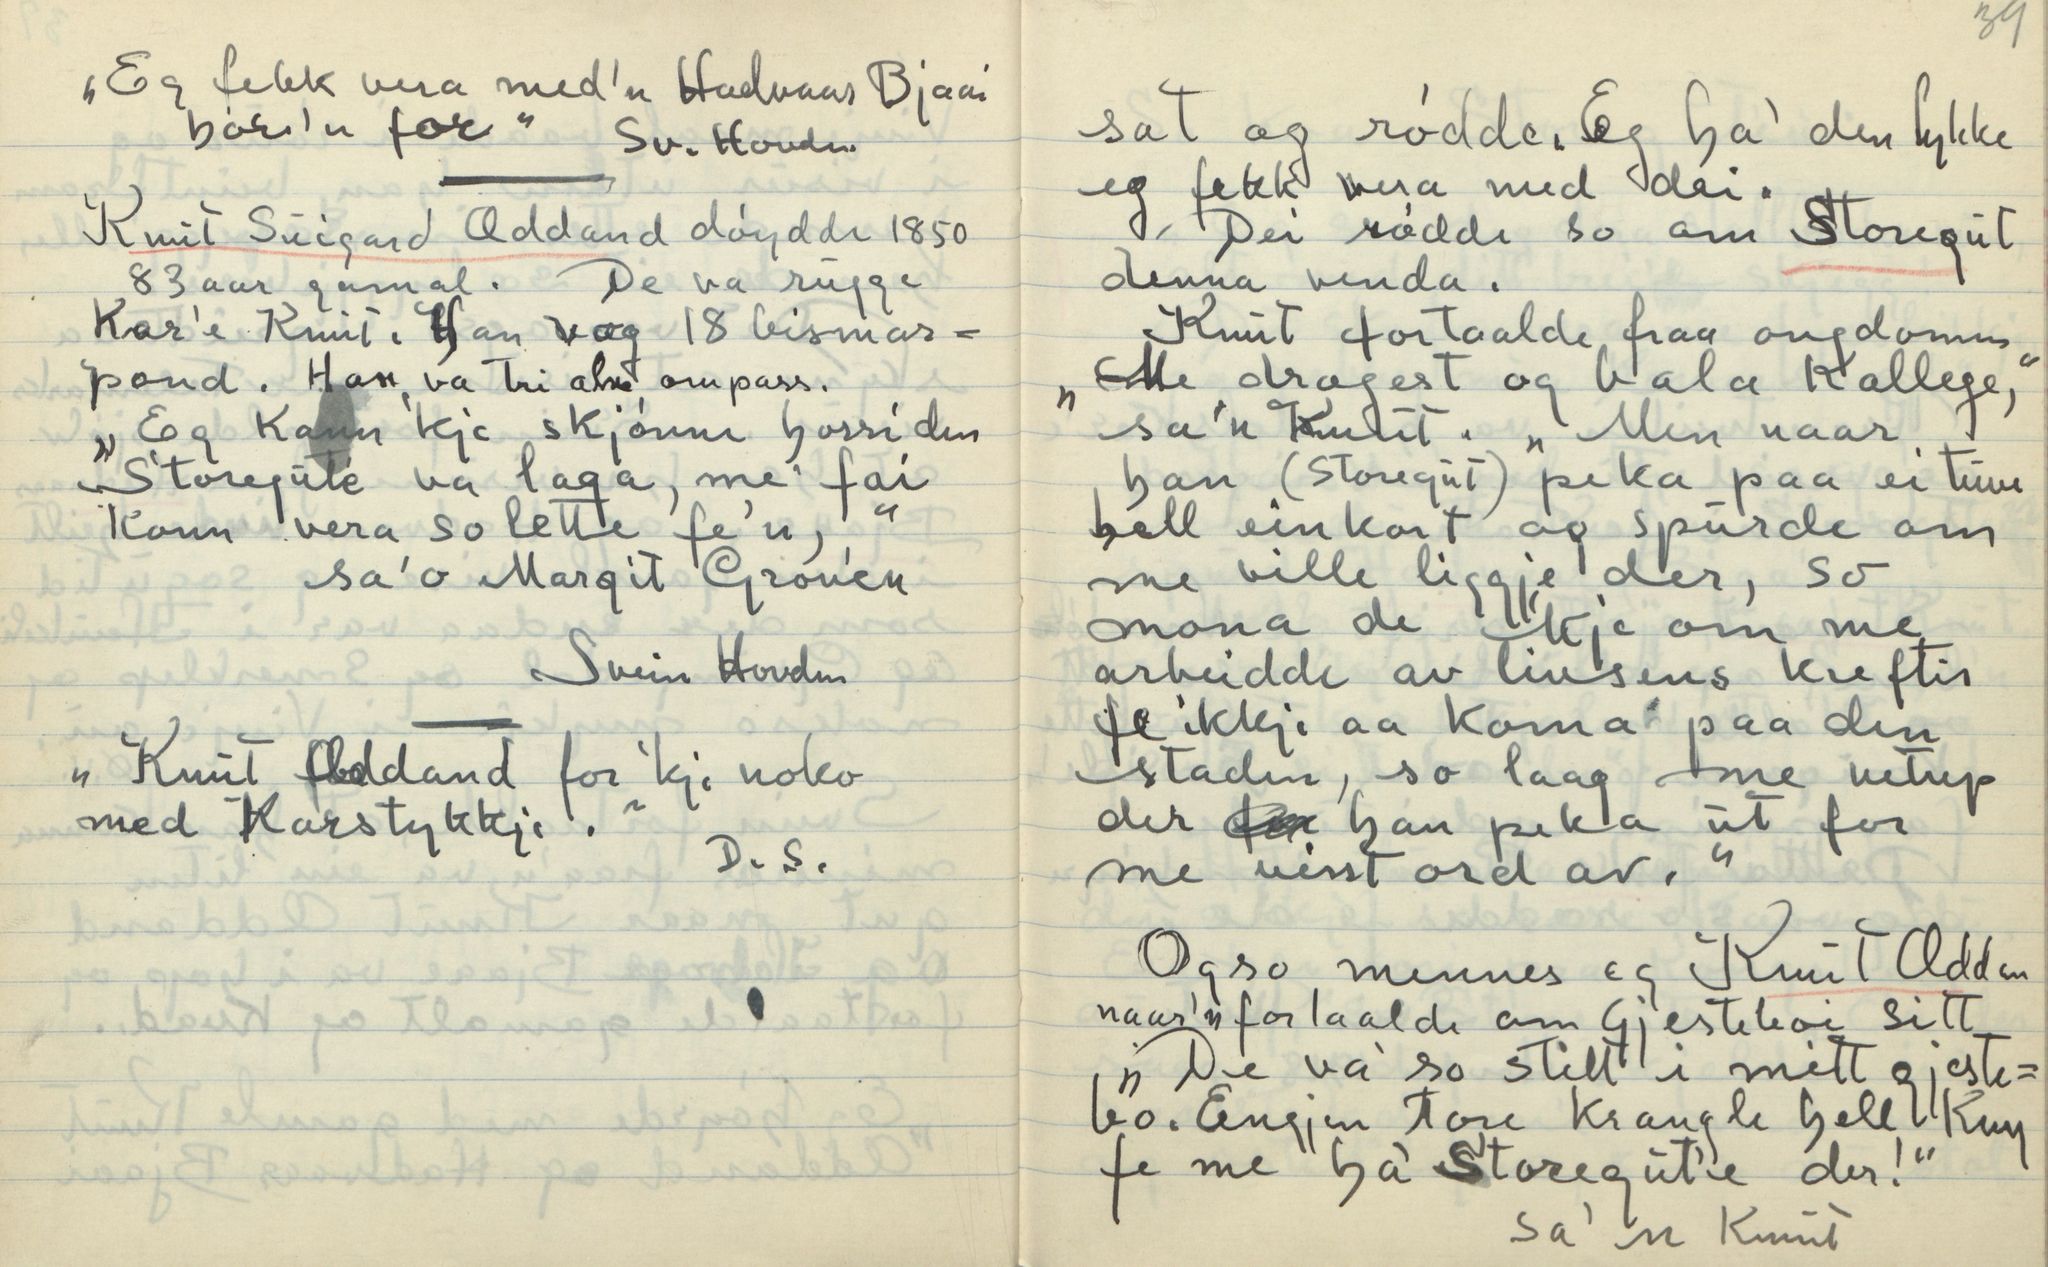 „Eg fekk vera med'n Hadvaar Bjaai
høre'n for“ Sv. Hovden.
Knut Súigard Oddand dóydde 1850
83 aar gamal. De va rúgge
Kar'e Knút. Han vog 18 bismar=
pond. Han va tri alne ompass.
„Eg kann'kje skjónne horri den
„Storegúte va laga, me fai
konn vera so lette fe'n,“
sa'o Margit Gróven
Svein Hovden
„Knút Oddand for'kje noko
med Karstykkje.“
D. S.
39
sat og ródde. Eg ha' den lykke
eg fekk vera med dei.
Dei ródde so om Storegút
denna venda.
Knút fortaalde fraa ongdomen
„Me drogest og bala kallege,“
sa'n Knút. „Men naar
han (Storegút) peka paa ei túve
hell einkort og spúrde om
me ville liggje der, so
mona de 'kje om me
arbeidde av livsens krefter
fe ikkje aa koma paa den
staden, so laag me netup
der han peka út for
me visst ord av.“
Ogso mennes eg Knút Oddan
naar'n fortaalde om Gjesteboi sitt
„De va so stilt i mitt gjeste=
bo. Engjen tore krangle hell
fe me ha Storegút'e der!“
sa'n Knút